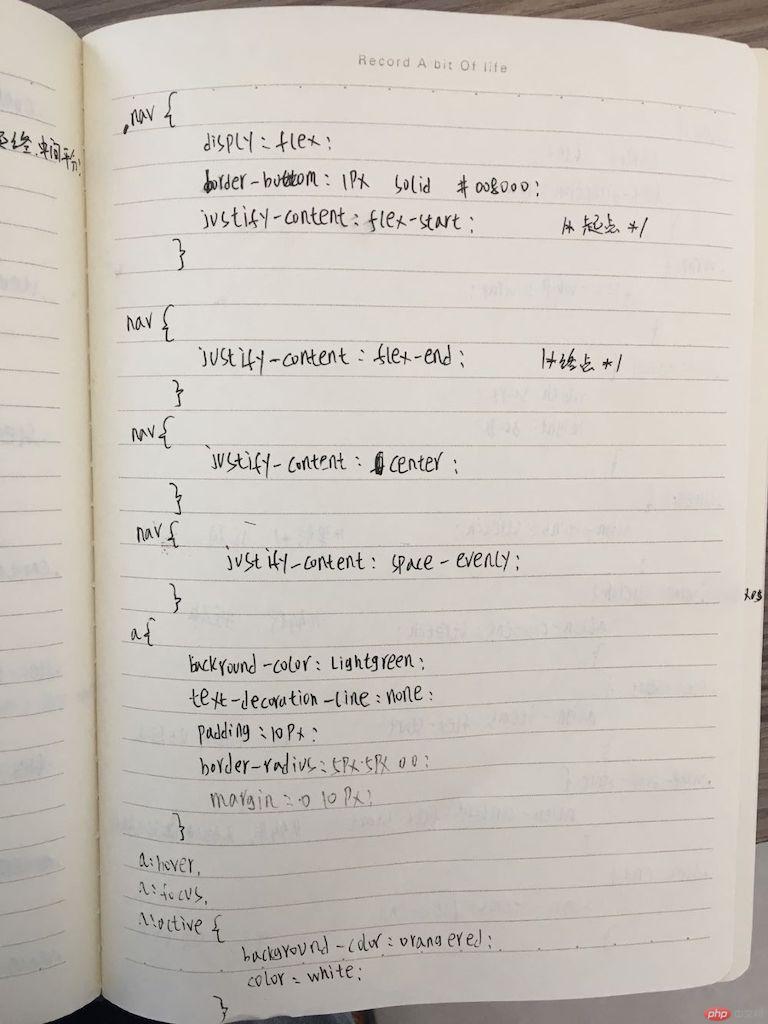 Record A bit Of life
.nav {
disply: flex;
border-bottom: 1px solid #008000;
justify-content: flex-start; /* 起点 */
}
nav {
justify-content: flex-end; /* 终点 */
}
nav {
justify-content: center;
}
nav {
justify-content: space-evenly;
}
a {
backround-color: Lightgreen;
text-decoration-line: none;
padding: 10px;
border-radius: 5px 5px 0 0;
margin: 0 10px;
}
a:hover,
a:focus,
a:active {
background-color: orangered;
color: white;
}
中间平分;
php 中文网